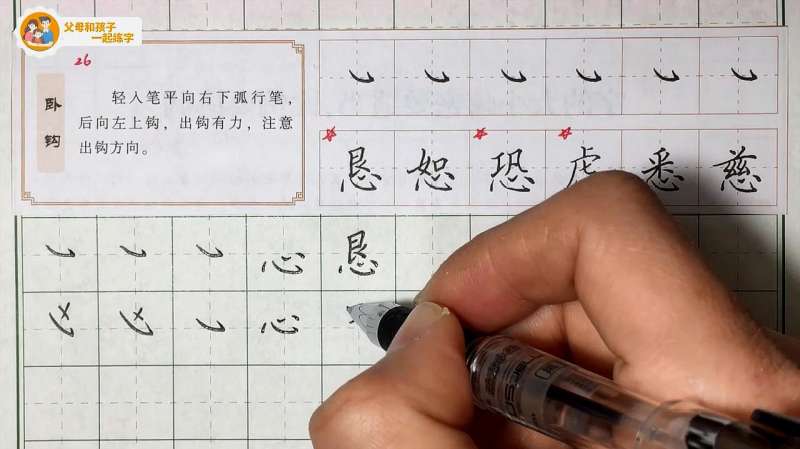 父母和孩子
一起练字
26
卧钩
轻入笔平向右下弧行笔，
后向左上钩，出钩有力，注意
出钩方向。
恳恕恐虑悉慈
心恳
心